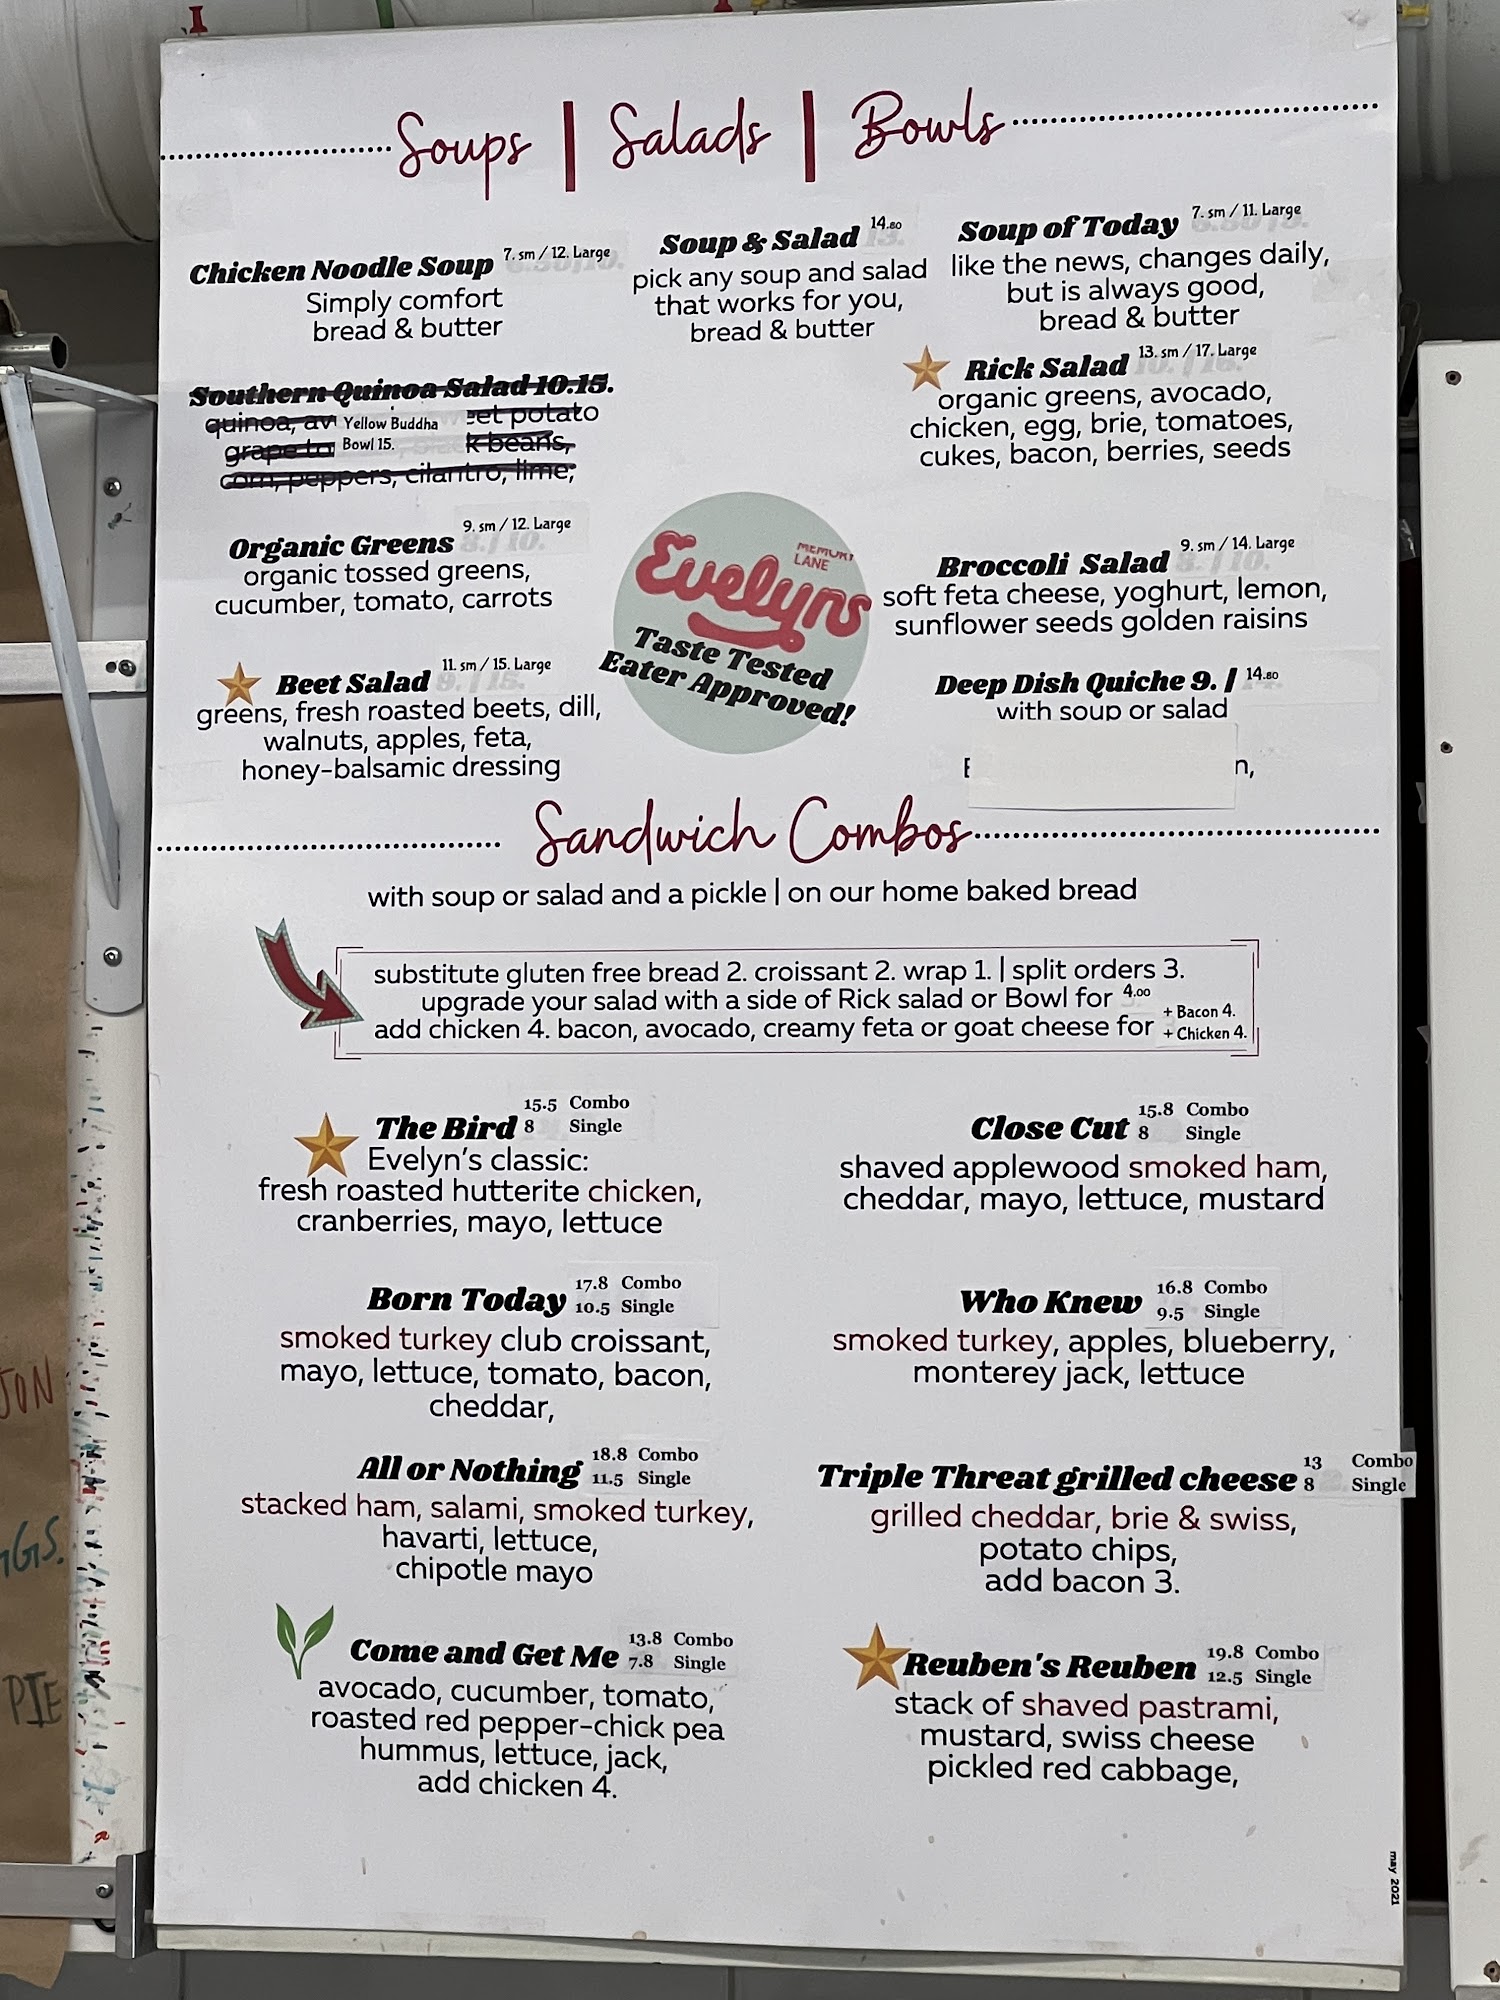 Soups | Salads | Bowls
Chicken Noodle Soup 7. sm / 12. Large
Simply comfort
bread & butter
Soup & Salad 14.80
pick any soup and salad
that works for you,
bread & butter
Soup of Today 7. sm / 11. Large
like the news, changes daily,
but is always good,
bread & butter
Southern Quinoa Salad 10.15.
quinoa, av Yellow Buddha eet potato
grape to Bowl 15. k beans,
corn, peppers, cilantro, lime,
Rick Salad 13. sm / 17. Large
organic greens, avocado,
chicken, egg, brie, tomatoes,
cukes, bacon, berries, seeds
Organic Greens 9. sm / 12. Large
organic tossed greens,
cucumber, tomato, carrots
MEMORY
LANE
Evelyns
Taste Tested
Eater Approved!
Broccoli Salad 9. sm / 14. Large
soft feta cheese, yoghurt, lemon,
sunflower seeds golden raisins
Beet Salad 11. sm / 15. Large
greens, fresh roasted beets, dill,
walnuts, apples, feta,
honey-balsamic dressing
Deep Dish Quiche 9. / 14.80
with soup or salad
n,
Sandwich Combos
with soup or salad and a pickle | on our home baked bread
substitute gluten free bread 2. croissant 2. wrap 1. | split orders 3.
upgrade your salad with a side of Rick salad or Bowl for 4.00
add chicken 4. bacon, avocado, creamy feta or goat cheese for + Bacon 4.
+ Chicken 4.
The Bird 15.5 Combo
8 Single
Evelyn's classic:
fresh roasted hutterite chicken,
cranberries, mayo, lettuce
Close Cut 15.8 Combo
8 Single
shaved applewood smoked ham,
cheddar, mayo, lettuce, mustard
Born Today 17.8 Combo
10.5 Single
smoked turkey club croissant,
mayo, lettuce, tomato, bacon,
cheddar,
Who Knew 16.8 Combo
9.5 Single
smoked turkey, apples, blueberry,
monterey jack, lettuce
All or Nothing 18.8 Combo
11.5 Single
stacked ham, salami, smoked turkey,
havarti, lettuce,
chipotle mayo
Triple Threat grilled cheese 13 Combo
8 Single
grilled cheddar, brie & swiss,
potato chips,
add bacon 3.
Come and Get Me 13.8 Combo
7.8 Single
avocado, cucumber, tomato,
roasted red pepper-chick pea
hummus, lettuce, jack,
add chicken 4.
Reuben's Reuben 19.8 Combo
12.5 Single
stack of shaved pastrami,
mustard, swiss cheese
pickled red cabbage,
may 2021
PIE